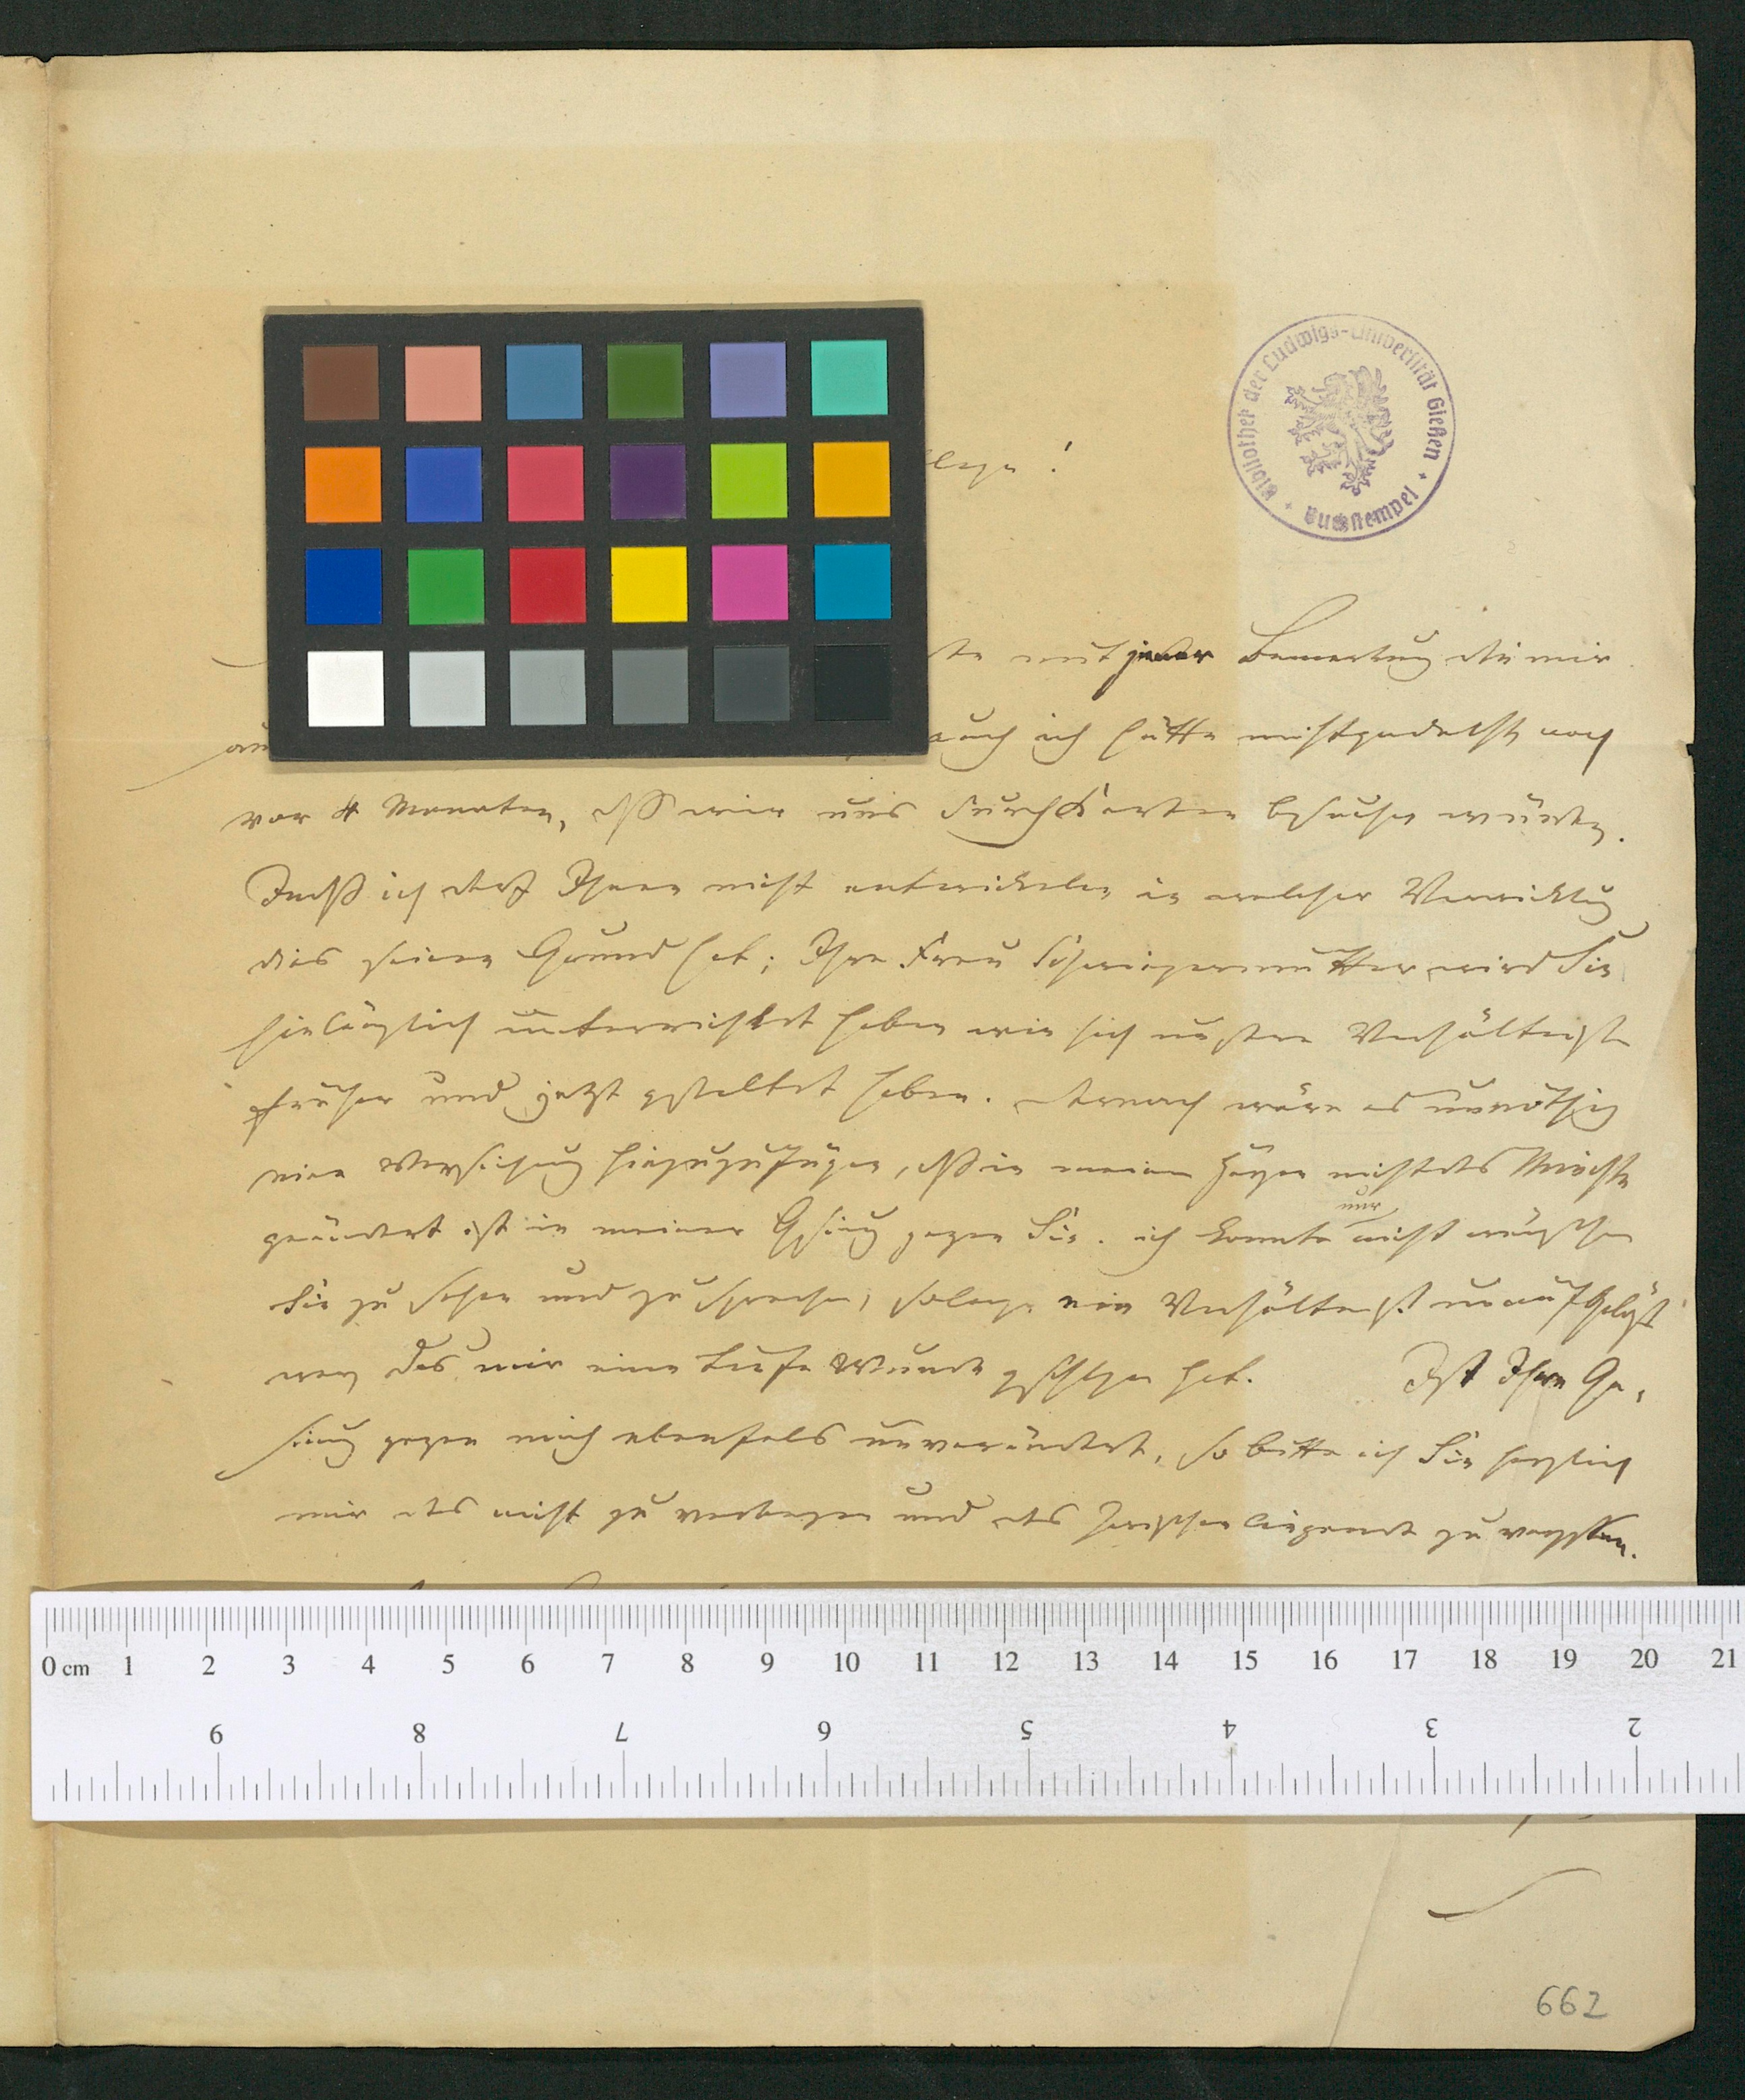 Bibliothek der Ludwigs-Universität Gießen
Buchstempel
llege!
mit jener Bemerkung die mir
auch ich hätte nicht gedacht noch
vor 4 Monaten, dß wir uns durch Karten besuchen würden.
Indeß ich darf Ihnen nicht entwickeln in welcher Verwicklung
dies seinen Grund hat; Ihre Frau Schwiegermutter wird Sie
hinlänglich unterrichtet haben wie sich unsere Verhältnisse
früher und jetzt gestaltet haben. Darnach wäre es unnöthig
eine Versicherung hinzuzufügen, dß in meinem Herzen nicht das Mindeste
geändert ist in meiner Gesinnung gegen Sie. ich konnte nur nicht wünschen
Sie zu sehen und zu sprechen, solange ein Verhältniß unaufgelöst
war das mir eine tiefe Wunde geschlagen hat. Ist Ihre Ge-
sinnung gegen mich ebenfals unverändert, so bitte ich Sie herzlich
mir das nicht zu verbergen und das Zwischenliegende zu vergessen.
0 cm 1 2 3 4 5 6 7 8 9 10 11 12 13 14 15 16 17 18 19 20 21
9 8 7 6 5 4 3 2
662